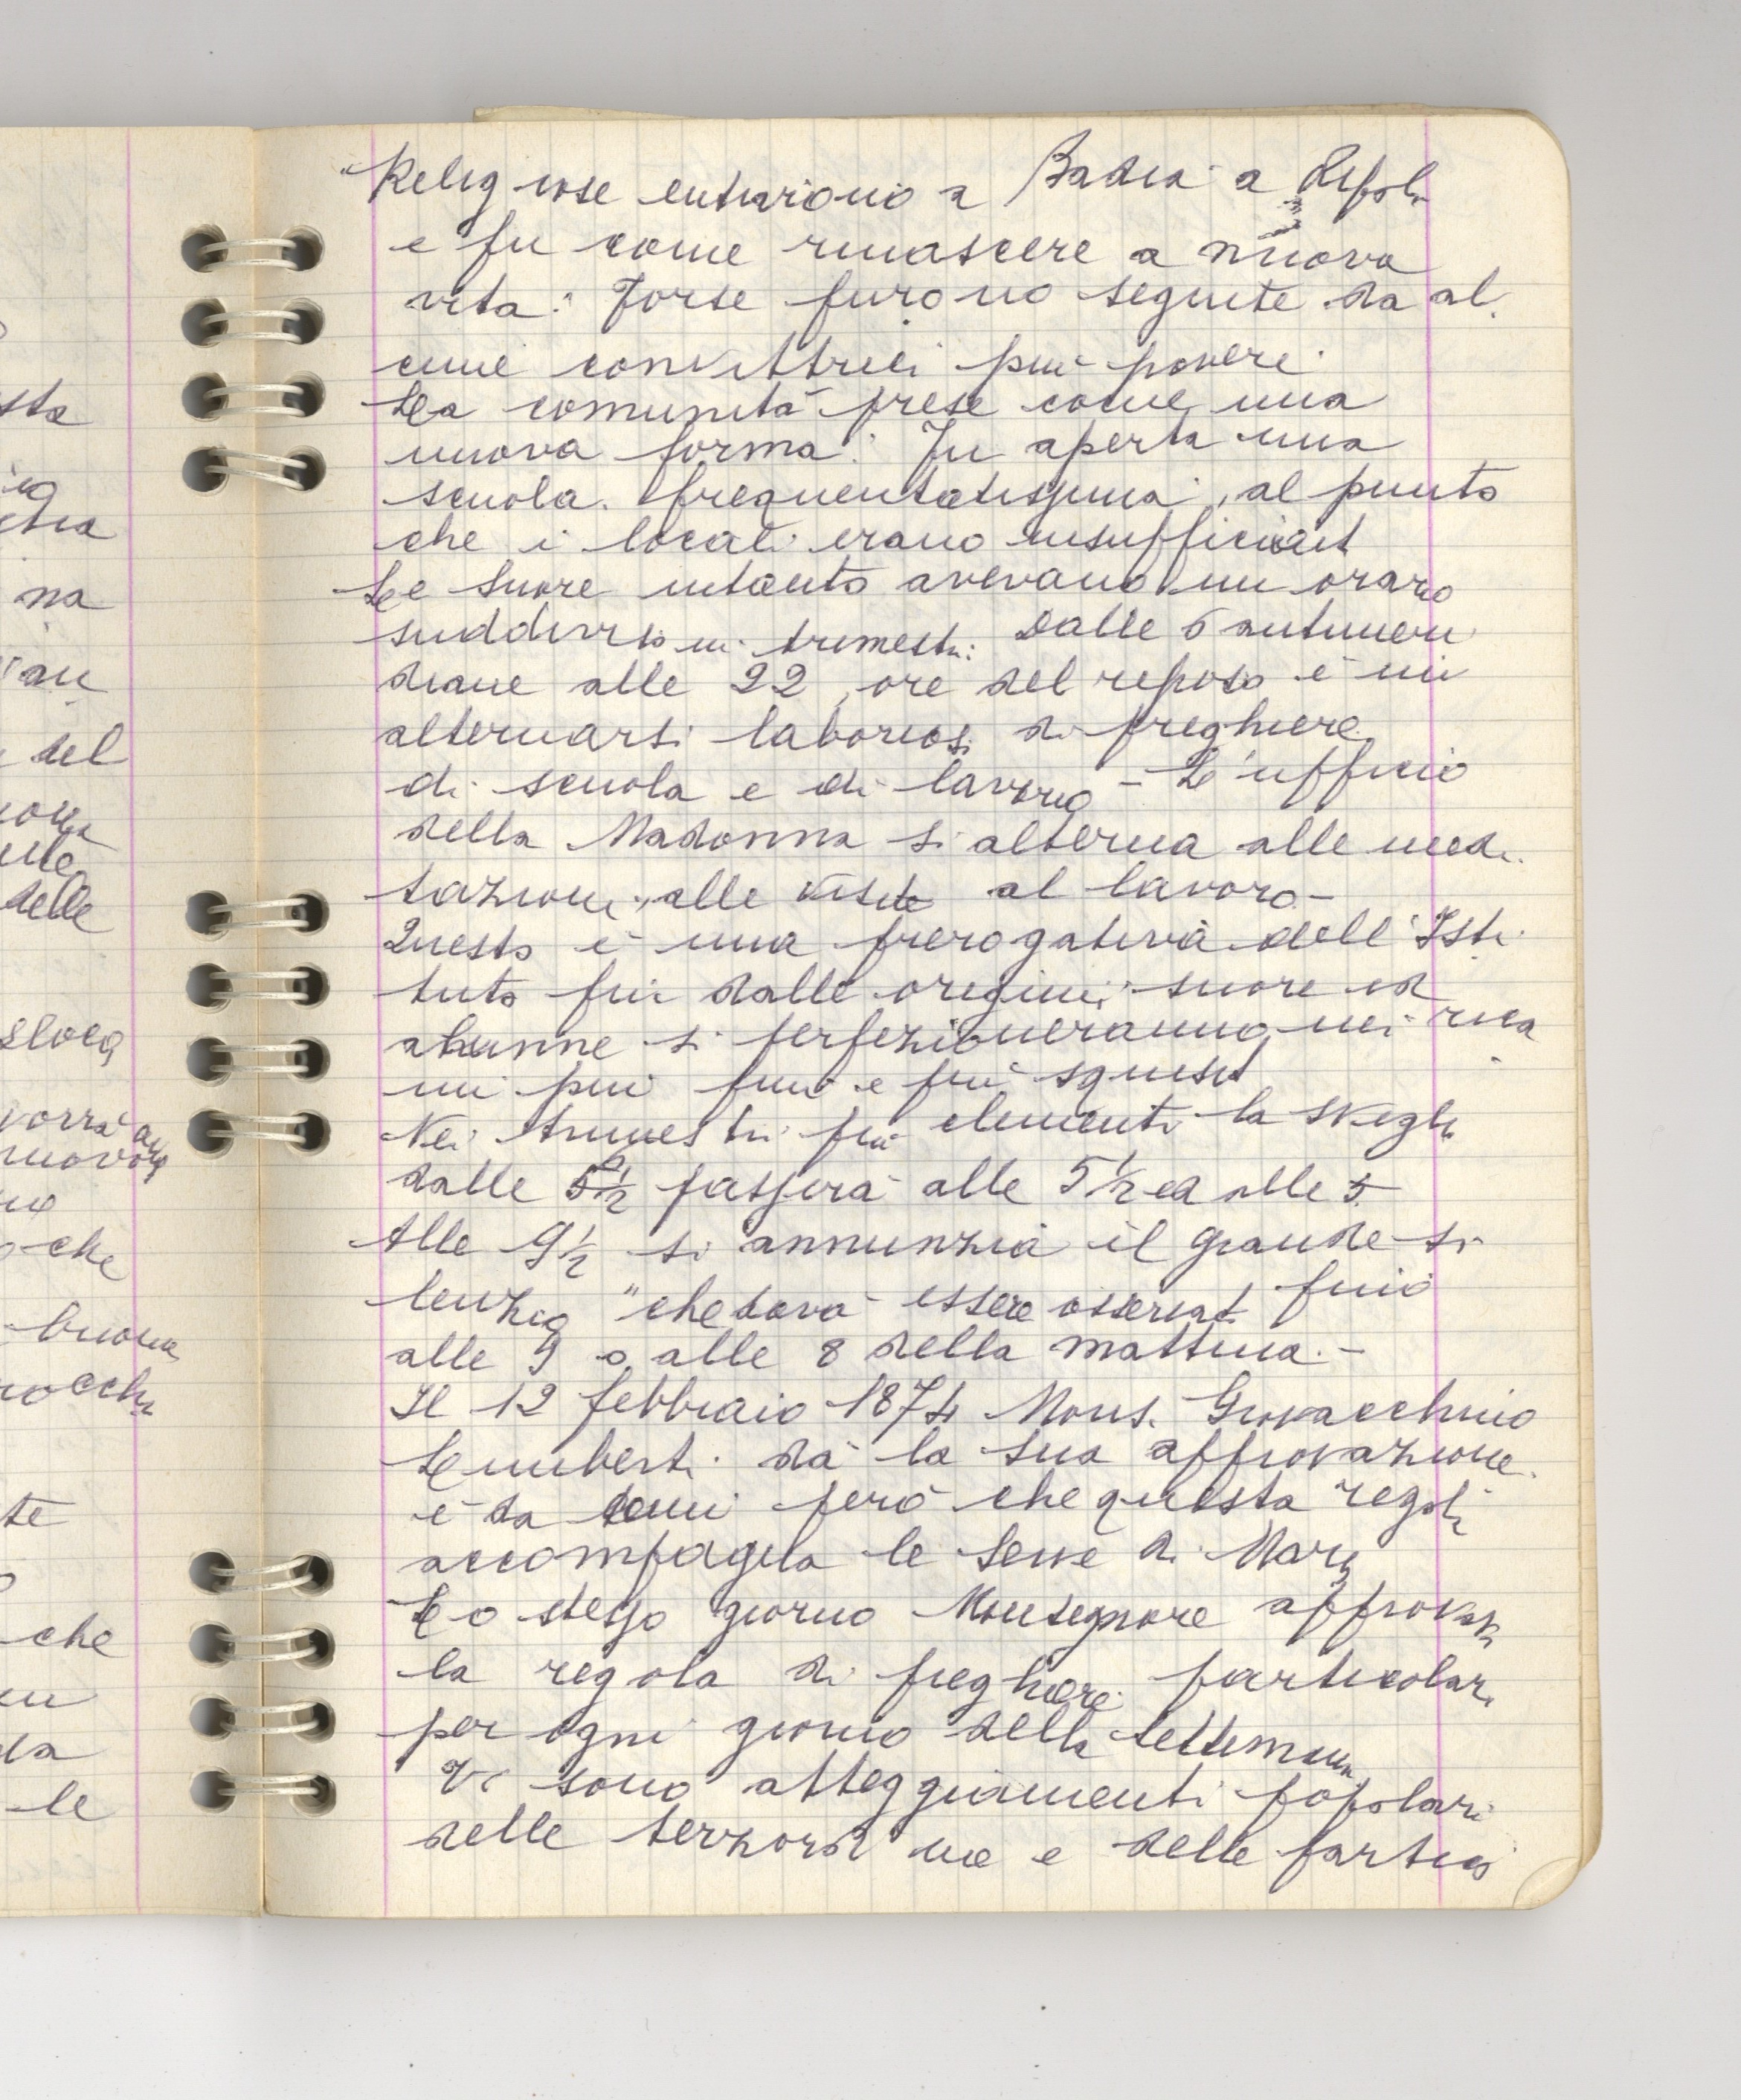 sta
na
del
delle
vorrà
nuovo
che
buona
te
che
da
le
Religiose entrarono a Badia a Ripoli
e fu come rinascere a nuova
vita. Forse furono seguite da al
cune convittrici più povere.
La comunità prese come una
nuova forma. Fu aperta una
scuola frequentatissima, al punto
che i locali erano insufficienti
Le Suore intanto avevano un orario
suddiviso in trimestri: Dalle 5 antimeri
diane alle 22, ore del riposo è un
alternarsi laborioso di preghiere
di scuola e di lavoro - L'ufficio
della Madonna si alterna alle medi
tazioni, alle visite al lavoro -
Questo è una prerogativa dell'Isti
tuto fin dalle origini; suore ed
alunne si perfezioneranno nei rica
mi più fini e più squisiti
Nei trimestri più clementi la sveglia
dalle ½ passerà alle 5½ ed alle 5
Alle 9½ si annunzia il grande si
lenzio "che dovrà essere osservato fino
alle 9 o alle 8 della mattina. -
Il 12 febbraio 1874 Mons. Giovacchino
Limberti dà la sua approvazione.
è da però che questa regola
accompagna le Serve di Maria
Lo stesso giorno Monsignore approva
la regola di preghiere particolari
per ogni giorno della settimana
Vi sono atteggiamenti popolari
delle terziarie e delle